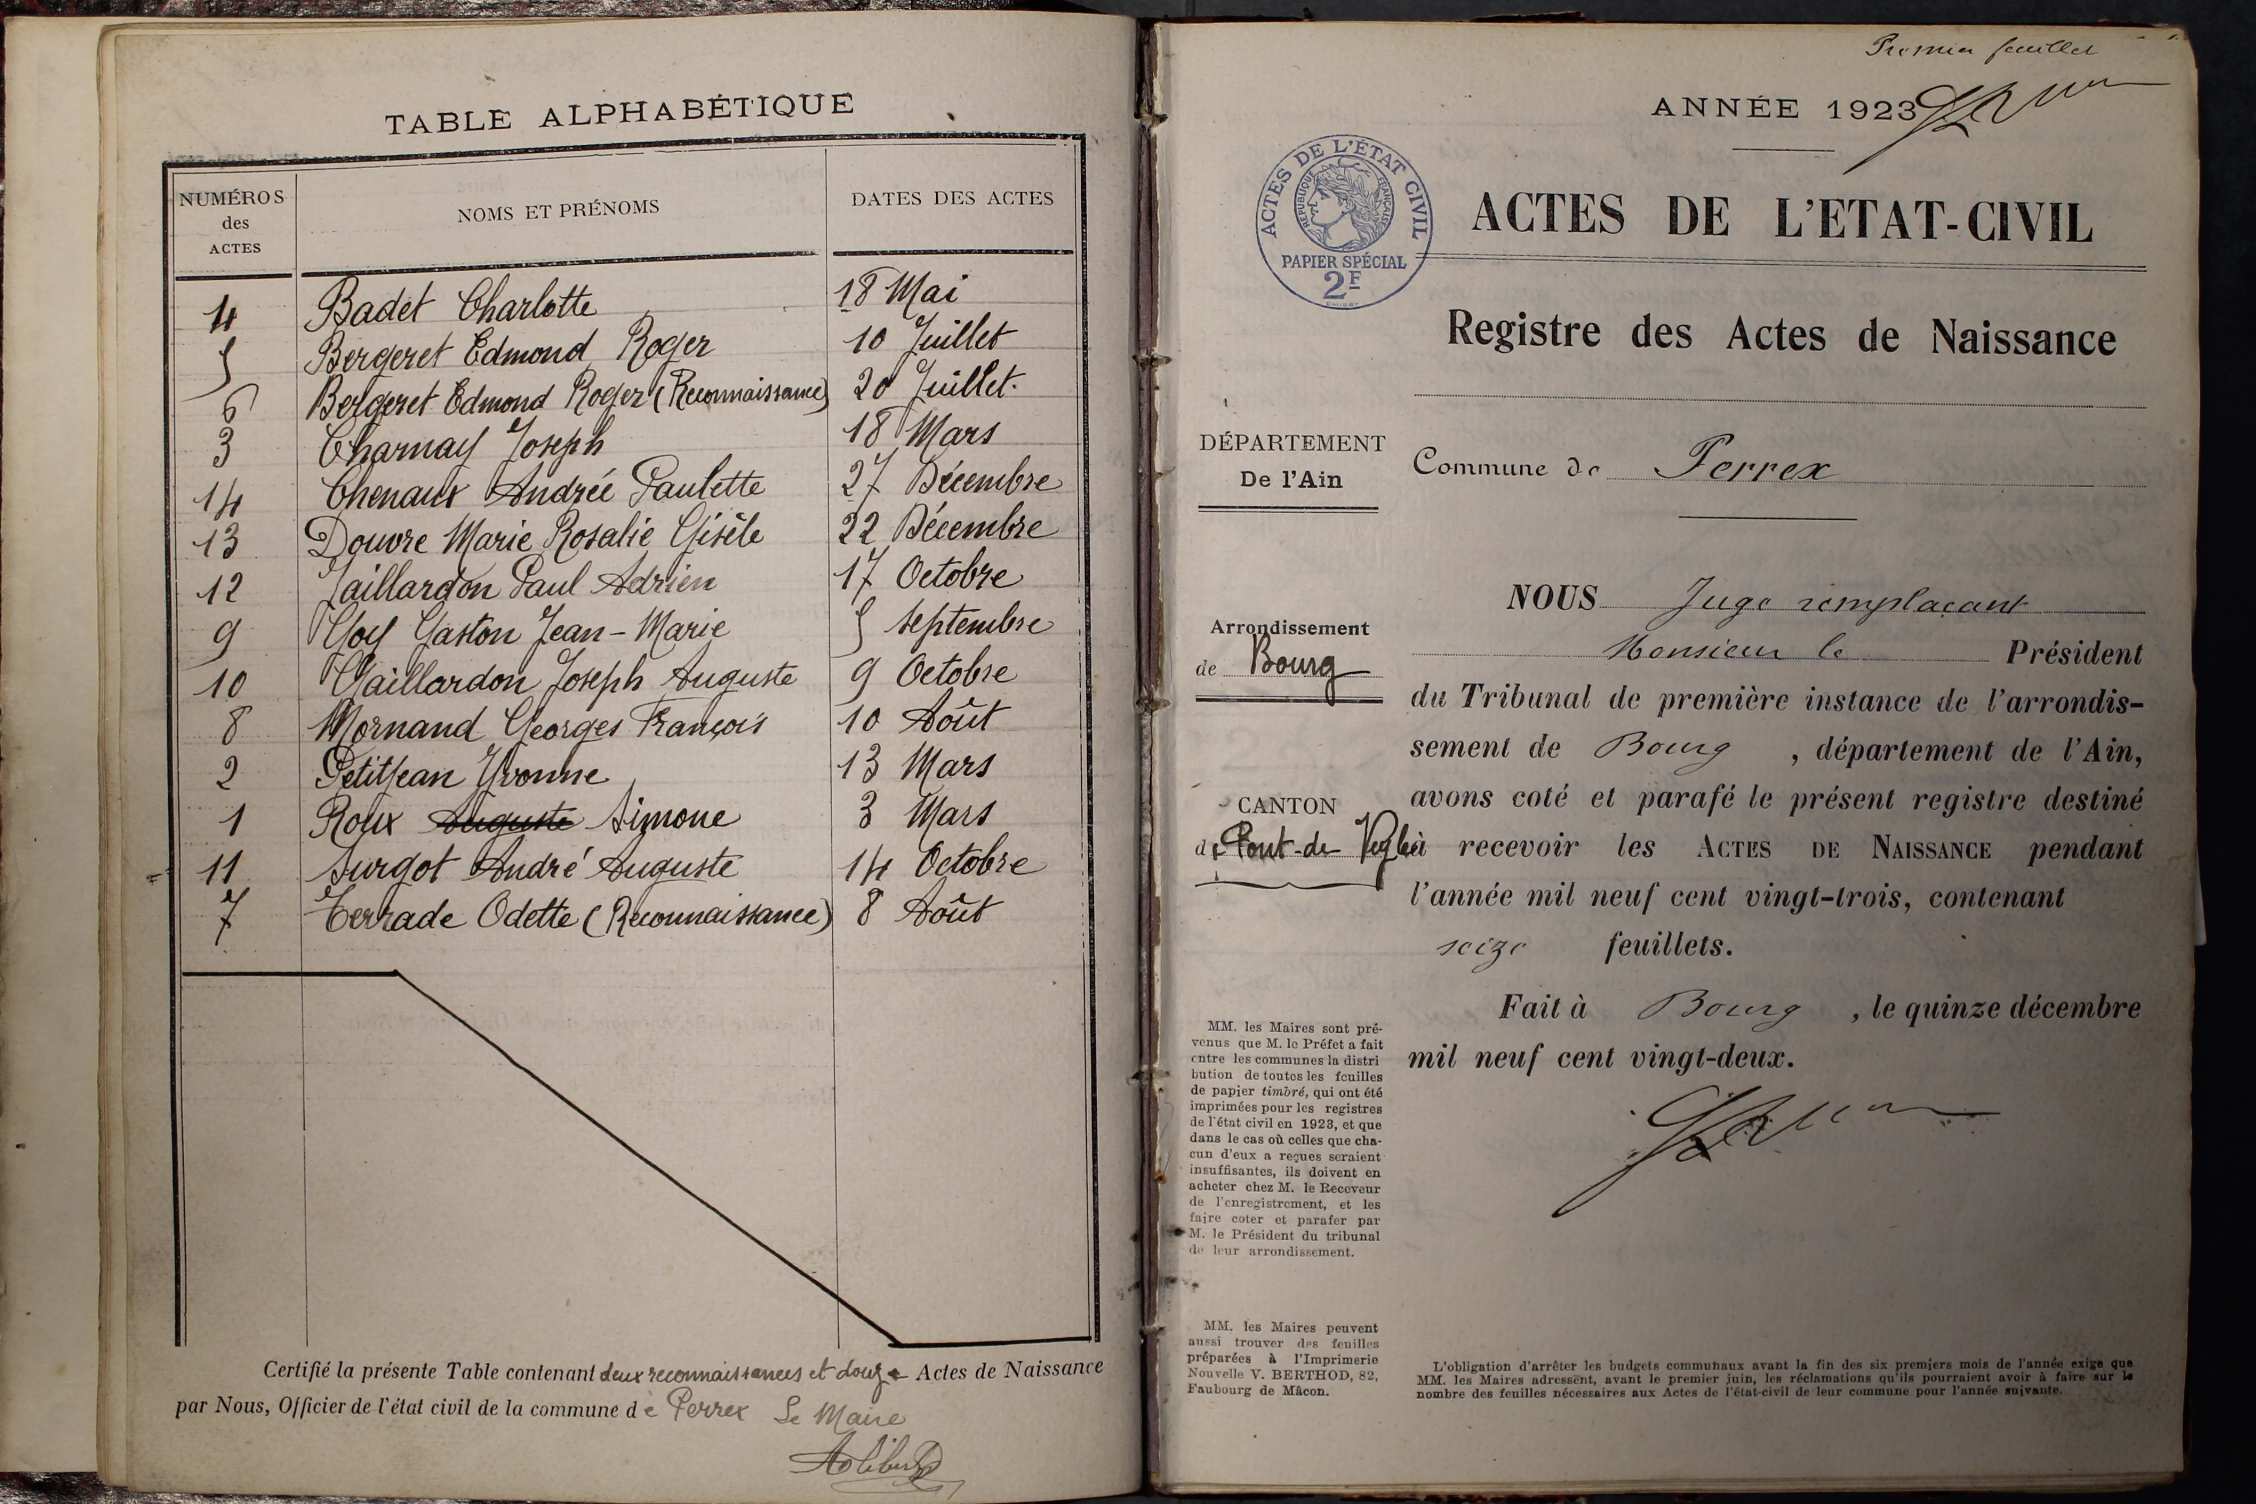 TABLE ALPHABÉTIQUE
NUMÉROS des ACTES | NOMS ET PRÉNOMS | DATES DES ACTES
4 Badet Charlotte 18 Mai
5 Bergeret Edmond Roger 10 Juillet
6 Bergeret Edmond Roger (Reconnaissance) 20 Juillet.
3 Charnay Joseph 18 Mars
14 Chenaux Andrée Paulette 27 Décembre
13 Douvre Marie Rosalie Gisèle 22 Décembre
12 Jaillardon Paul Adrien 17 Octobre
9 Goy Gaston Jean-Marie 5 septembre
10 Gaillardon Joseph Auguste 9 Octobre
8 Mornand Georges François 10 Août
2 Petitjean Yvonne 13 Mars
1 Roux Auguste Simone 3 Mars
11 Surgot André Auguste 14 Octobre
7 Terrade Odette (Reconnaissance) 8 Août
Certifié la présente Table contenant deux reconnaissances et douze Actes de Naissance
par Nous, Officier de l'état civil de la commune de Perrex Le Maire
Premier feuillet
ANNÉE 1923
ACTES DE L'ÉTAT CIVIL
RÉPUBLIQUE FRANÇAISE
PAPIER SPÉCIAL
2F
ACTES DE L'ETAT-CIVIL
Registre des Actes de Naissance
DÉPARTEMENT
De l'Ain
Commune de Perrex
Arrondissement
de Bourg
CANTON
de Pont-de-Veyle
NOUS Juge remplaçant
Monsieur le Président
du Tribunal de première instance de l'arrondis-
sement de Bourg, département de l'Ain,
avons coté et parafé le présent registre destiné
à recevoir les ACTES DE NAISSANCE pendant
l'année mil neuf cent vingt-trois, contenant
seize feuillets.
Fait à Bourg, le quinze décembre
mil neuf cent vingt-deux.
MM. les Maires sont pré-
venus que M. le Préfet a fait
entre les communes la distri
bution de toutes les feuilles
de papier timbré, qui ont été
imprimées pour les registres
de l'état civil en 1923, et que
dans le cas où celles que cha-
cun d'eux a reçues seraient
insuffisantes, ils doivent en
acheter chez M. le Receveur
de l'enregistrement, et les
faire coter et parafer par
M. le Président du tribunal
de leur arrondissement.
MM. les Maires peuvent
aussi trouver des feuilles
préparées à l'Imprimerie
Nouvelle V. BERTHOD, 82,
Faubourg de Mâcon.
L'obligation d'arrêter les budgets communaux avant la fin des six premiers mois de l'année exige que
MM. les Maires adressent, avant le premier juin, les réclamations qu'ils pourraient avoir à faire sur le
nombre des feuilles nécessaires aux Actes de l'état-civil de leur commune pour l'année suivante.